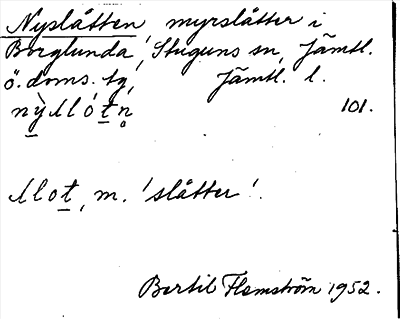 Nyslåtten, myrslåtter i
Borglunda, Stuguns sn, Jämtl.
ö. doms. tg, Jämtl. l.
101.
slot, m. 'slåtter'.
Bertil Flemström 1952.